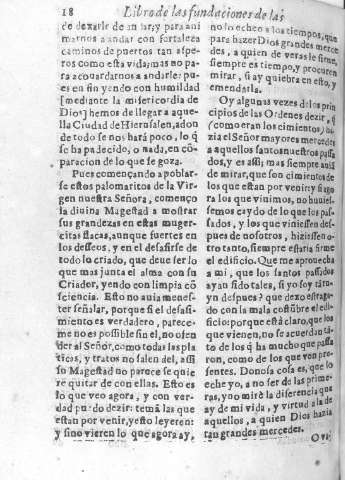 18 Libro de las fundaciones de las
de dexarle de andar, y para ani
marnos a andar con fortaleza
caminos de puertos tan aspe-
ros como esta vida; mas no pa-
ra acouardarnos a andarle: pu-
es en fin yendo con humildad
[mediante la misericordia de
Dios] hemos de llegar a aque-
lla Ciudad de Hierusalen, adon
de todo se nos hará poco, lo q̃
se ha padecido, o nada, en cõ-
paracion de lo que se goza.
Pues començando a poblar-
se estos palomaritos de la Vir-
gen nuestra Señora, començo
la diuina Magestad a mostrar
sus grandezas en estas muger-
citas flacas, aunque fuertes en
los desseos, y en el desasirse de
todo lo criado, que deue ser lo
que mas junta el alma con su
Criador, yendo con limpia cõ
sciencia. Esto no auia menes-
ter señalar, porque si el desasi-
miento es verdadero, parece-
me no es possible sin el, no ofen
der al Señor, como todas las pla
ticas, y tratos no salen del, assi
su Magestad no parece se quie
re quitar de con ellas. Esto es
lo que veo agora, y con ver-
dad puedo dezir: temã las que
estan por venir, y esto leyeren:
y sino vieren lo que agora ay,
no lo echen a los tiempos, que
para hazer Dios grandes merce
des, a quien de veras le sirue,
siempre es tiempo, y procuren
mirar, si ay quiebra en esto, y
emendarla.
Oy algunas vezes de los prin
cipios de las Ordenes dezir, q̃
(como eran los cimientos) ha-
zia el Señor mayores mercedes
a aquellos santos nuestros passa
dos, y es assi; mas siempre auiã
de mirar, que son cimientos de
los que estan por venir: y si ago
ra los que vinimos, no huuies-
semos caydo de lo que los pas-
sados, y los que viniessen des-
pues de nosotros, hiziessen o-
tro tanto, siempre estaria firme
el edificio. Que me aprouecha
a mi, que los santos passados
ayan sido tales, si yo soy tã ru-
yn despues? que dexo estraga-
do con la mala costũbre el edi-
ficio: porque està claro, que los
que vienen, no se acuerdan tã-
to de los q̃ ha mucho que passa
ron, como de los que ven pre-
sentes. Donosa cosa es, que lo
eche yo, a no ser de las prime-
ras, y no mirè la diferencia que
ay de mi vida, y virtud a la de
aquellos, a quien Dios hazia
tan grandes mercedes.